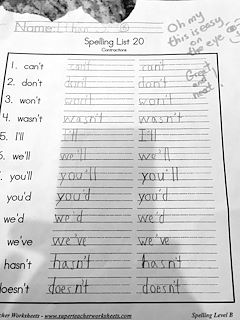 Name:
Oh my
this is easy
on
the eye
Great
and
neat!
Spelling List 20
Contractions
1. can't can't can't
2. don't don't don't
3. won't won't won't
4. wasn't wasn't wasn't
5. I'll I'll I'll
we'll we'll we'll
you'll you'll you'll
you'd you'd you'd
we'd we'd we'd
we've we've we've
hasn't hasn't hasn't
doesn't doesn't doesn't
cher Worksheets - www.superteacherworksheets.com Spelling Level B